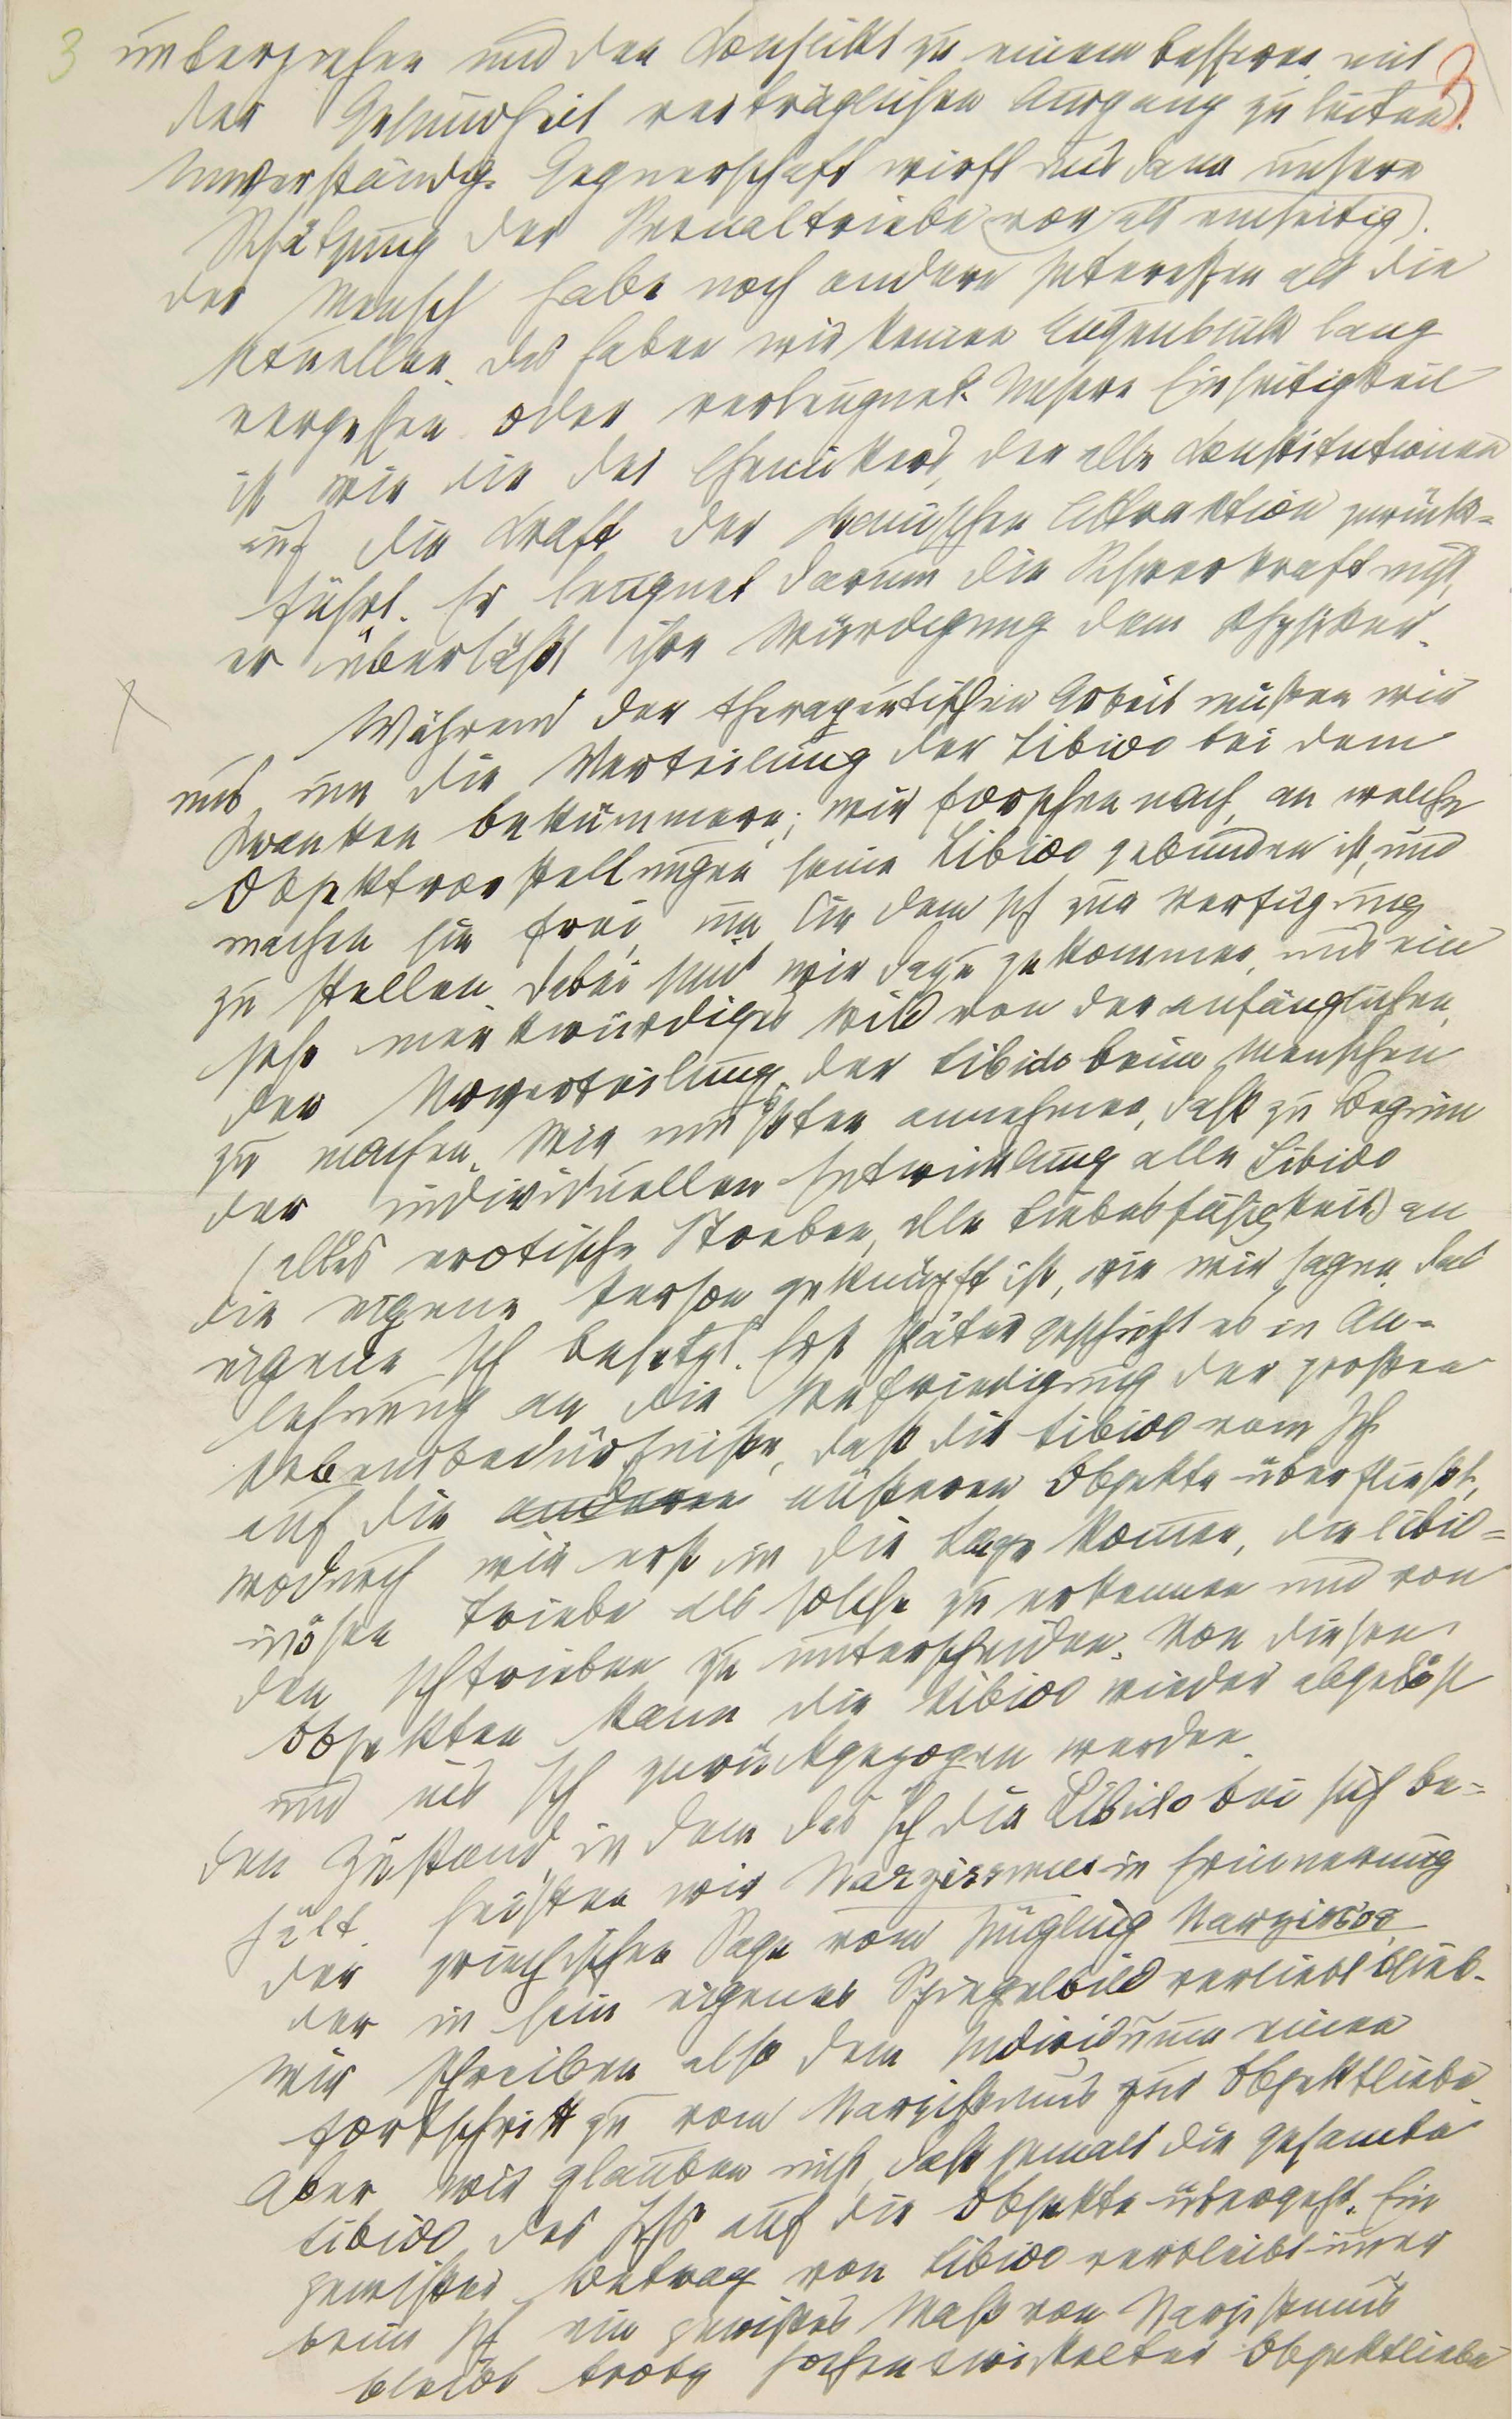 3 unterziehen und den Konflikt zu einem besseren mit 3
der Gesundheit verträglichen Ausgang zu leiten.
Unverständige Gegnerschaft wirft uns dann unsere
Schätzung der Sexualtriebe vor als einseitig).
der Mensch habe noch andere Interessen als die
sexuellen. das haben wir keinen Augenblick lang
vergessen oder verleugnet. Unsere Einseitigkeit
ist wie die des Chemikers, der alle Konstitutionen
auf die Kraft der chemischen Attraktion zurück-
führt. Er leugnet darum die Schwerkraft nicht,
er überläßt ihre Würdigung dem Physiker.
Während der therapeutischen Arbeit müssen wir
uns um die Verteilung der Libido bei dem
Kranken bekümmern; wir forschen nach, an welche
Objektvorstellungen seine Libido gebunden ist, und
machen sie frei, um sie dem Ich zur Verfügung
zu stellen. dabei sind wir dazu gekommen, uns ein
sehr merkwürdiges Bild von der anfänglichen,
der Urverteilung der Libido beim Menschen
zu machen. Wir mußten annehmen, daß zu Beginn
der individuellen Entwicklung alle Libido
(alles erotische Streben, alle Liebesfähigkeit) an
die eigene Person geknüpft ist, wie wir sagen, das
eigene Ich besetzt. Erst später geschieht es in An-
lehnung an die Befriedigung der großen
Lebensbedürfnisse, daß die Libido vom Ich
auf die anderen äußeren Objekte überfließt,
wodurch wir erst in die Lage kommen, die libid-
inösen Triebe als solche zu erkennen und von
den Ichtrieben zu unterscheiden. Von diesen
Objekten kann die Libido wieder abgelöst
und ins Ich zurückgezogen werden.
den Zustand, in dem das Ich die Libido bei sich be-
hält, heißen wir Narzissmus in Erinnerung
der griechischen Sage vom Jüngling Narzissos,
der in sein eigenes Spiegelbild verliebt blieb.
Wir schreiben also dem Individuum einen
Fortschritt zu vom Narzißmus zur Objektliebe.
Aber wir glauben nicht, daß jemals die gesamte
Libido des Ichs auf die Objekte übergeht. Ein
gewisser Betrag von Libido verbleibt immer
beim Ich, ein gewisses Maß von Narzißmus
bleibt trotz hochentwickelter Objektliebe